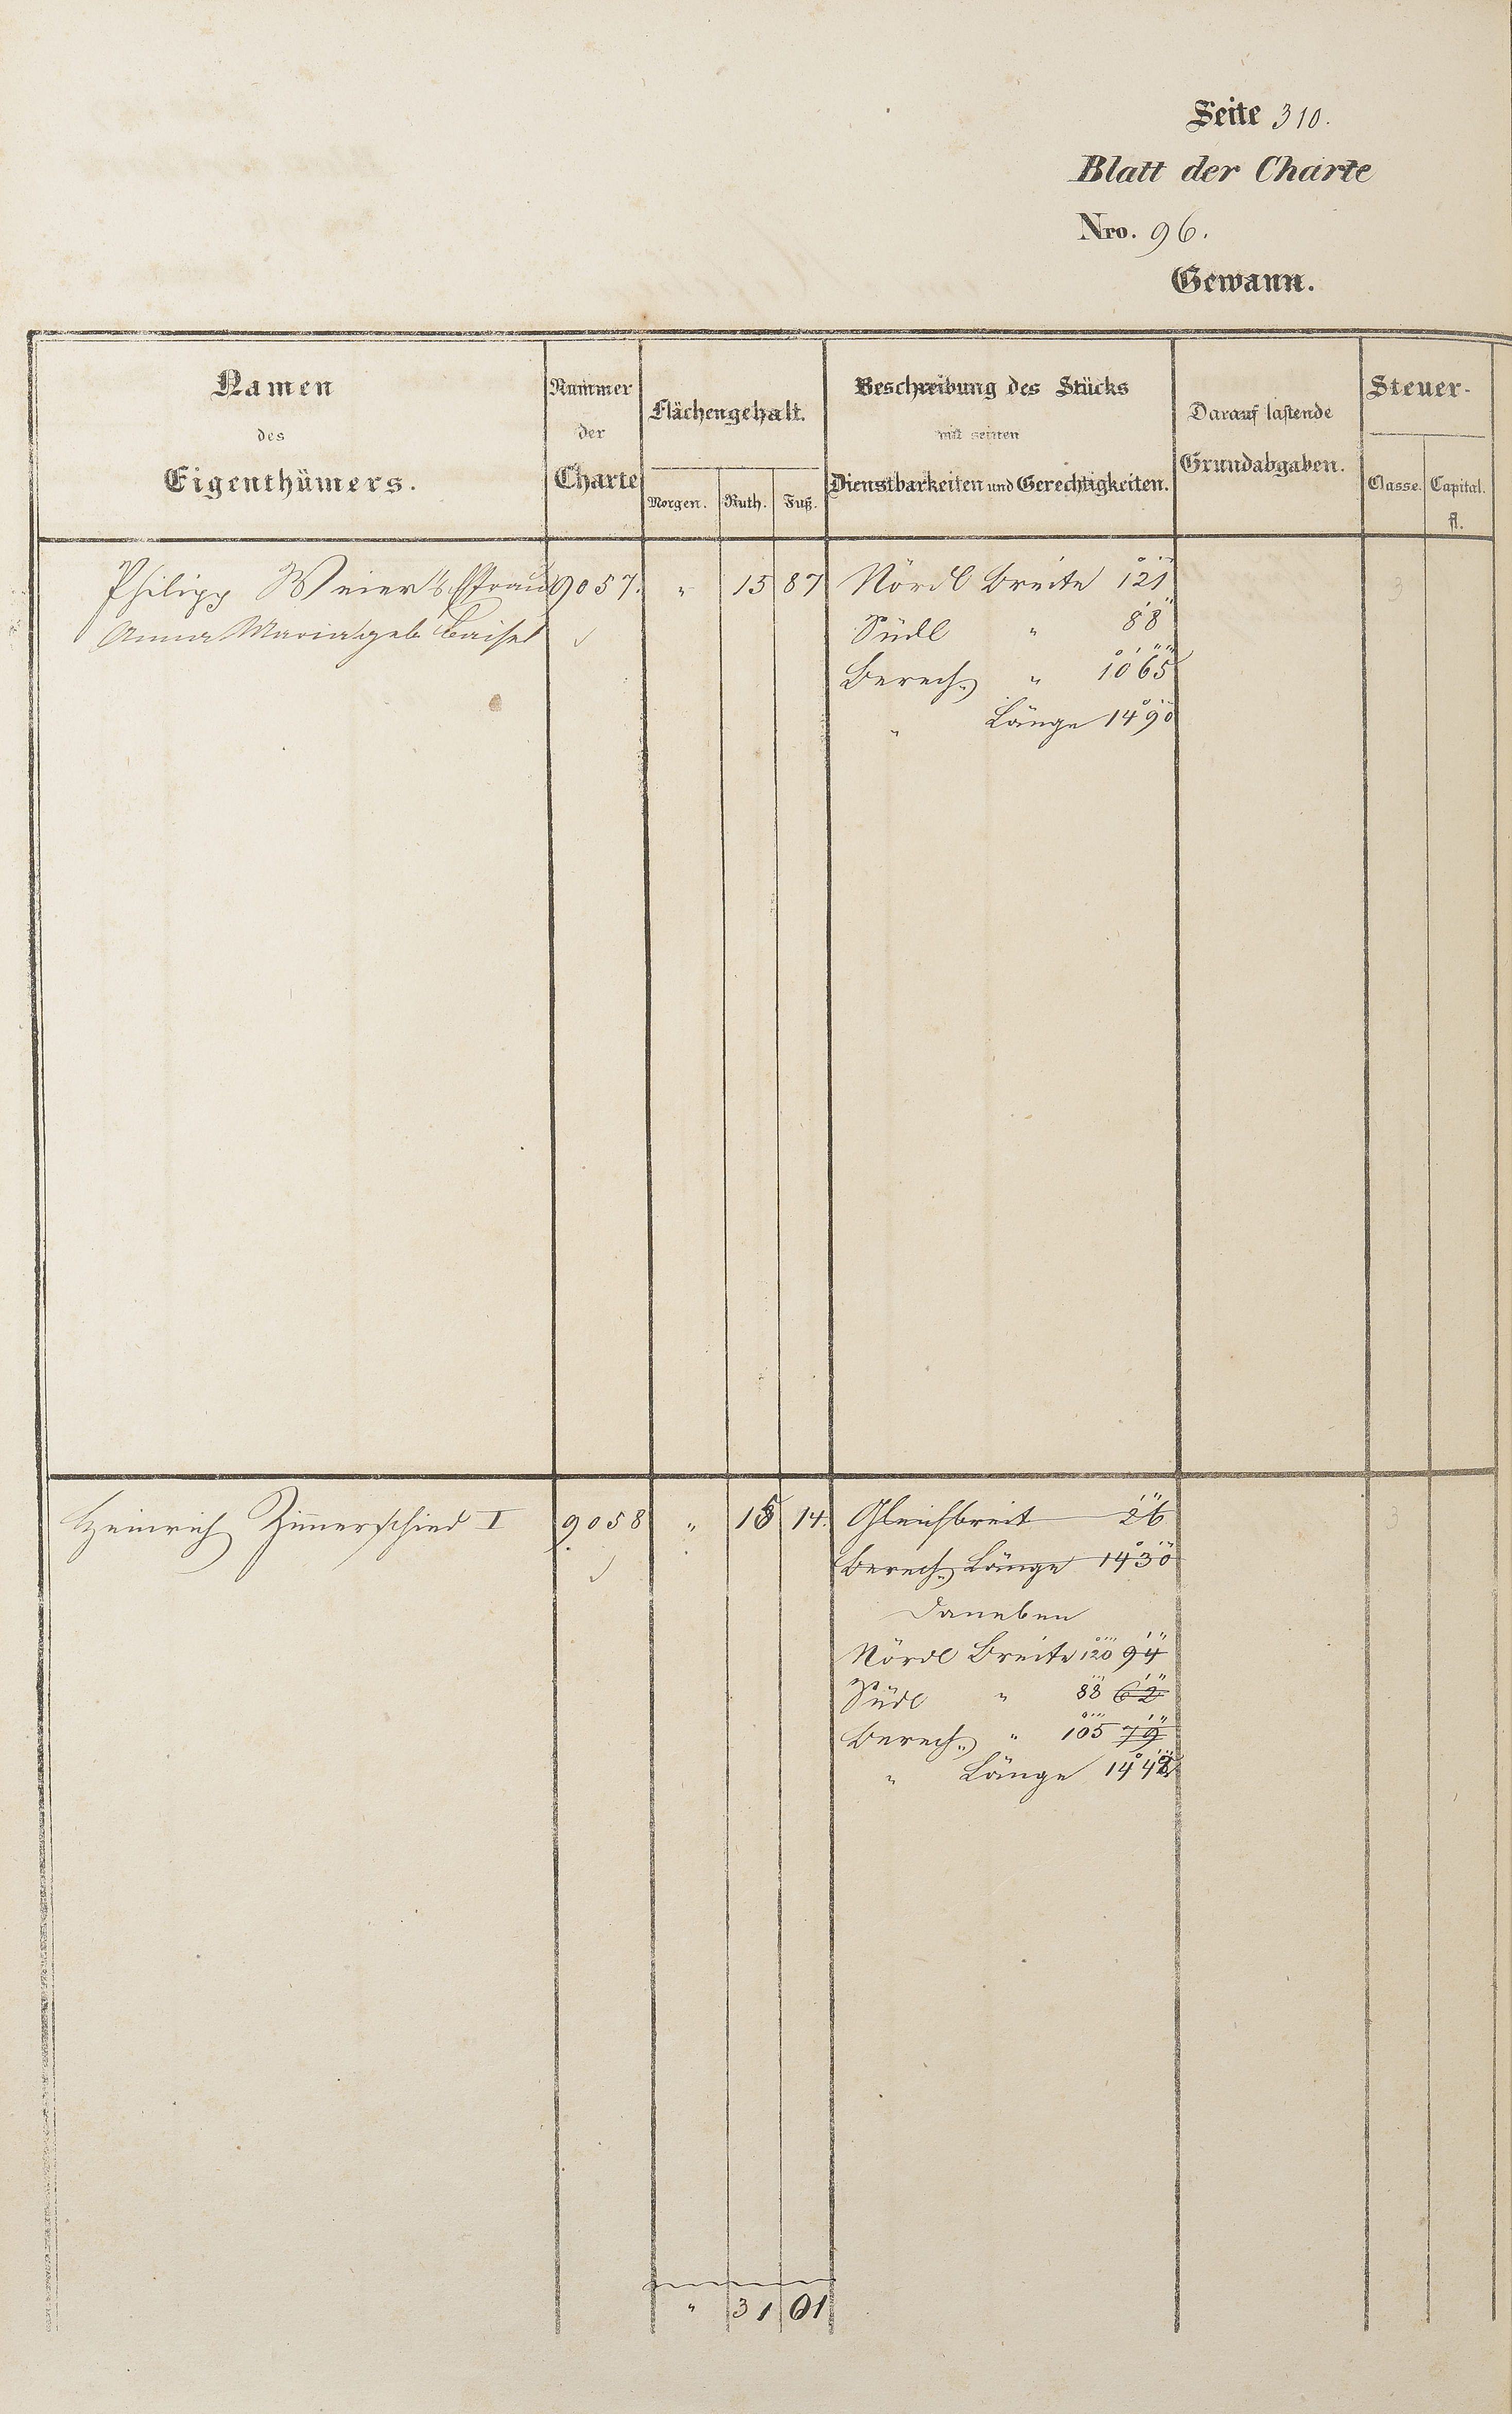 Seite 310.
Blatt der Charte
Nro. 96.
Gewann.
Namen
des
Eigenthümers.
Nummer
der
Charte
Flächengehalt.
Morgen. Ruth. Fuß.
Beschreibung des Stücks
mit seinen
Dienstbarkeiten und Gerechtigkeiten.
Darauf lastende
Grundabgaben.
Steuer-
Classe. Capital.
fl.
Philipp Weier's Ehfrau 9057. " 15 87 Nördl Breite 1°2'1" 3
Anna Maria geb Baisel Südl " 8'8"
Berech. " 1°0'6"5'''
" Länge 14°9'0"
Heinrich Zimerschied I 9058 " 15 14. Gleichbreit 2'6" 3
Berech. Länge 14°3'0"
Daneben
Nördl Breite 1°2'0" 9'4"
Südl " 8'8" 6'2"
Berech. " 1°0'5" 7'9"
" Länge 14°4'2"
" 31 01